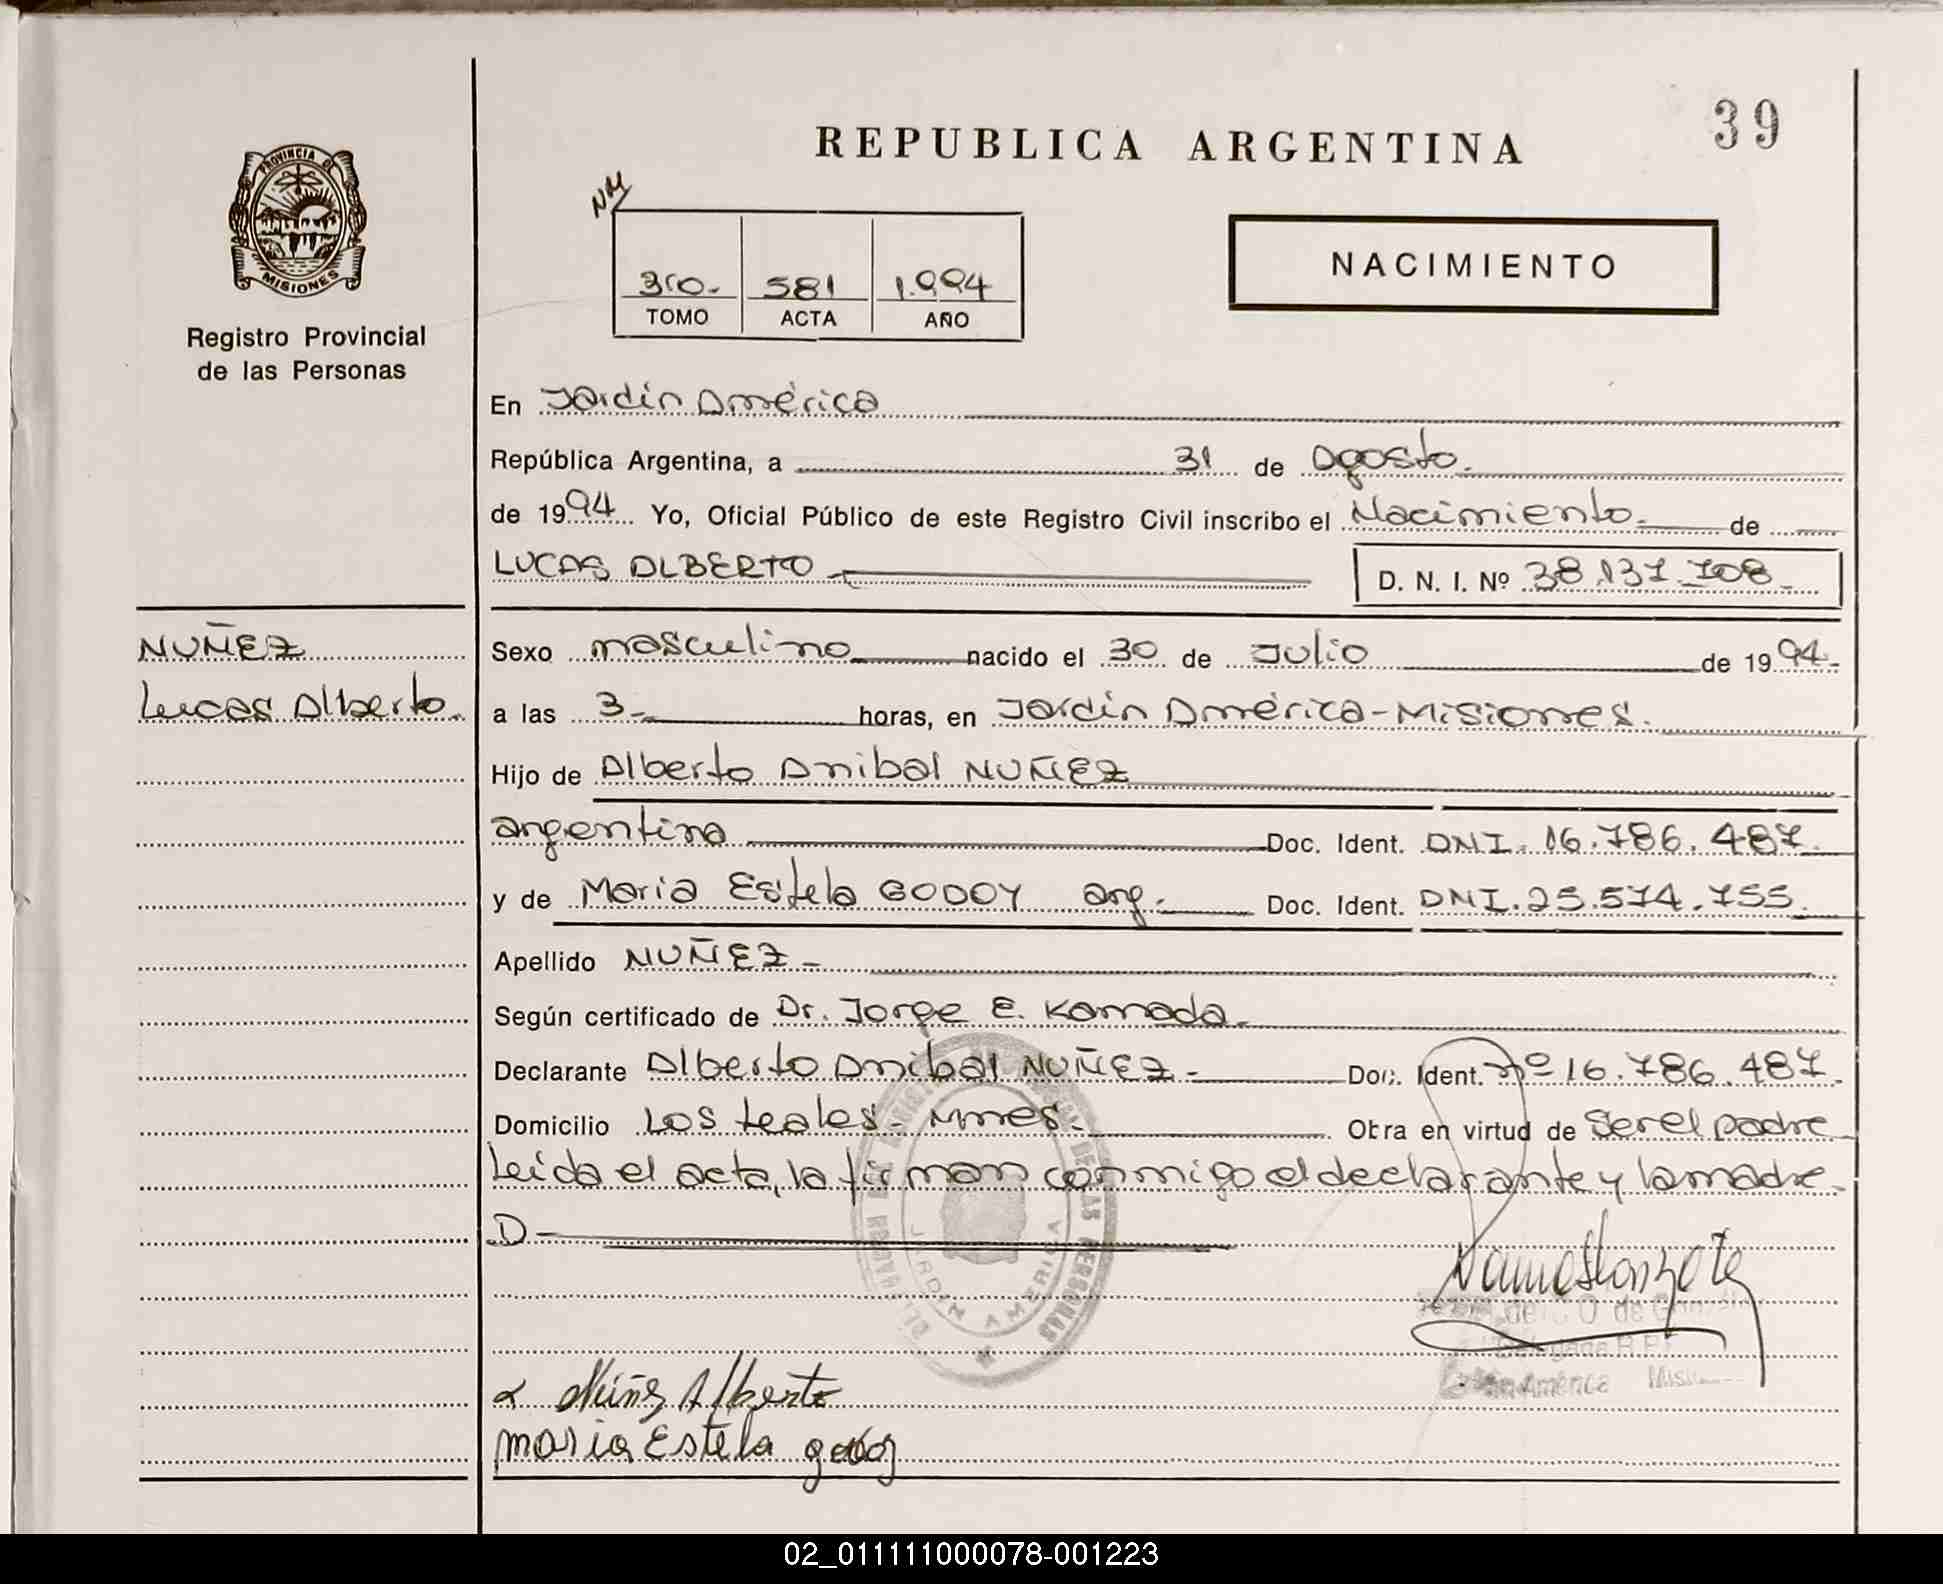 39
REPUBLICA ARGENTINA
NM
PROVINCIA D
MISIONES
NACIMIENTO
581 1.994
TOMO ACTA AÑO
Registro Provincial
de las Personas
En Jardín América
República Argentina, a 31 de Agosto.
de 1994 Yo, Oficial Público de este Registro Civil inscribo el Nacimiento de
LUCAS ALBERTO D. N. I. Nº 38.137.708
NUÑEZ
Lucas Alberto.
Sexo masculino nacido el 30 de Julio de 1994
a las 3 horas, en Jardín América - Misiones.
Hijo de Alberto Anibal NUÑEZ
argentina Doc. Ident. DNI. 16.786.487
y de Maria Estela GODOY arg. Doc. Ident. DNI. 25.574.755.
Apellido NUÑEZ
Según certificado de Dr. Jorge E. Kamada
Declarante Alberto Anibal NUÑEZ Doc. Ident. nº 16.786.487
Domicilio Los teales - Mnes. Obra en virtud de Ser el padre
Leída el acta, la firman conmigo el declarante y la madre
D
JARDIN AMERICA
DE LAS PERSONAS
America Mis
Nuñez Alberto
maria Estela godoy
02_011111000078-001223